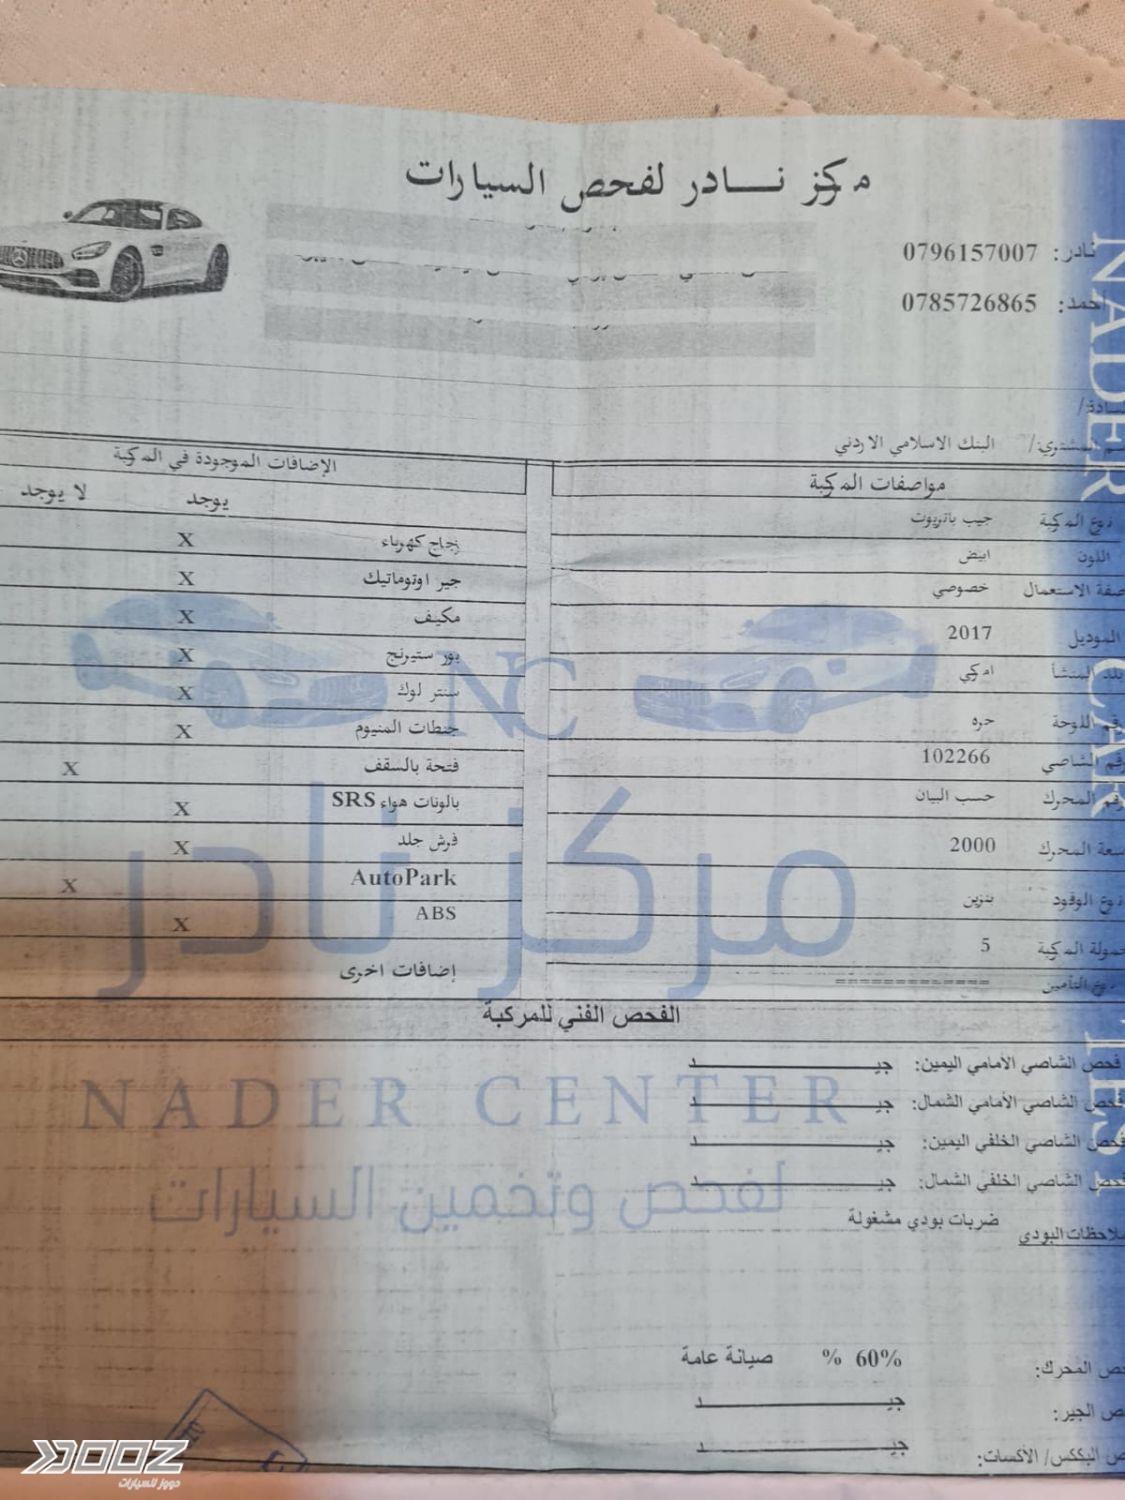 مركز نادر لفحص السيارات
نادر: 0796157007
احمد: 0785726865
المشتري/ البنك الاسلامي الاردني
مواصفات المركبة
نوع المركبة جيب باتريوت
اللون ابيض
صفة الاستعمال خصوصي
الموديل 2017
بلد المنشأ امركي
رقم اللوحة حره
رقم الشاصي 102266
رقم المحرك حسب البيان
سعة المحرك 2000
نوع الوقود بنزين
حمولة المركبة 5
نوع التأمين =============
الإضافات الموجودة في المركبة
يوجد لا يوجد
زجاج كهرباء X
جير اوتوماتيك X
مكيف X
بور ستيرنج X
سنتر لوك X
جنطات المنيوم X
فتحة بالسقف X
بالونات هواء SRS X
فرش جلد X
AutoPark X
ABS X
إضافات اخرى
الفحص الفني للمركبة
فحص الشاصي الأمامي اليمين: جيــــد
فحص الشاصي الأمامي الشمال: جيــــد
فحص الشاصي الخلفي اليمين: جيــــد
فحص الشاصي الخلفي الشمال: جيــــد
ملاحظات البودي ضربات بودي مشغولة
فحص المحرك: 60% % صيانة عامة
فحص الجير: جيــــد
البككس/ الأكسات: جيــــد
NC
مركز نادر
NADER CENTER
لفحص وتخمين السيارات
NADER CAR TEST
DOOZ
دووز للسيارات